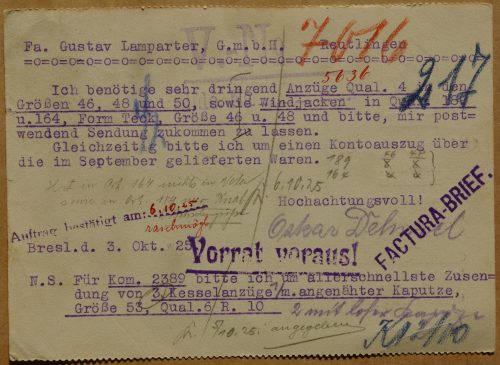 Fa. Gustav Lamparter, G.m.b.H. Reutlingen
V.N.
7616
5636
217
Ich benötige sehr dringend Anzüge Qual. 4 den
Größen 46, 48 und 50, sowie Windjacken in Qu. 189
u.164, Form Teck, Größe 46 u. 48 und bitte, mir post=
wendend Sendung zukommen zu lassen.
Gleichzeitig bitte ich um einen Kontoauszug über
die im September gelieferten Waren.
189
164
6.10.25
Hochachtungsvoll!
Auftrag bestätigt am: 6.10.25
raschmögl
Oskar
Bresl.d. 3. Okt. 25
Vorrat voraus!
FACTURA-BRIEF.
N.S. Für Kom. 2389 bitte ich um allerschnellste Zusen=
dung von 3 Kesselanzüge m.angenähter Kaputze,
Größe 53, Qual.6/R. 10
2 mit loser
10.25. angegeben